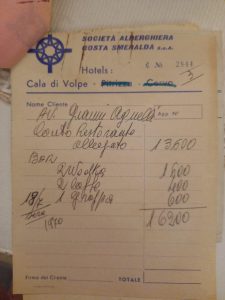 SOCIETÀ ALBERGHIERA
COSTA SMERALDA s.p.a.
Hotels:
Cala di Volpe - Pitrizza - Cervo
Nome Cliente
AV. Gianni Agnelli
Conto Ristorante
allegato 13600
BAR
2 Vodka 1600
2 caffè 400
1 grappa 600
16200
1970
Firma del Cliente
TOTALE